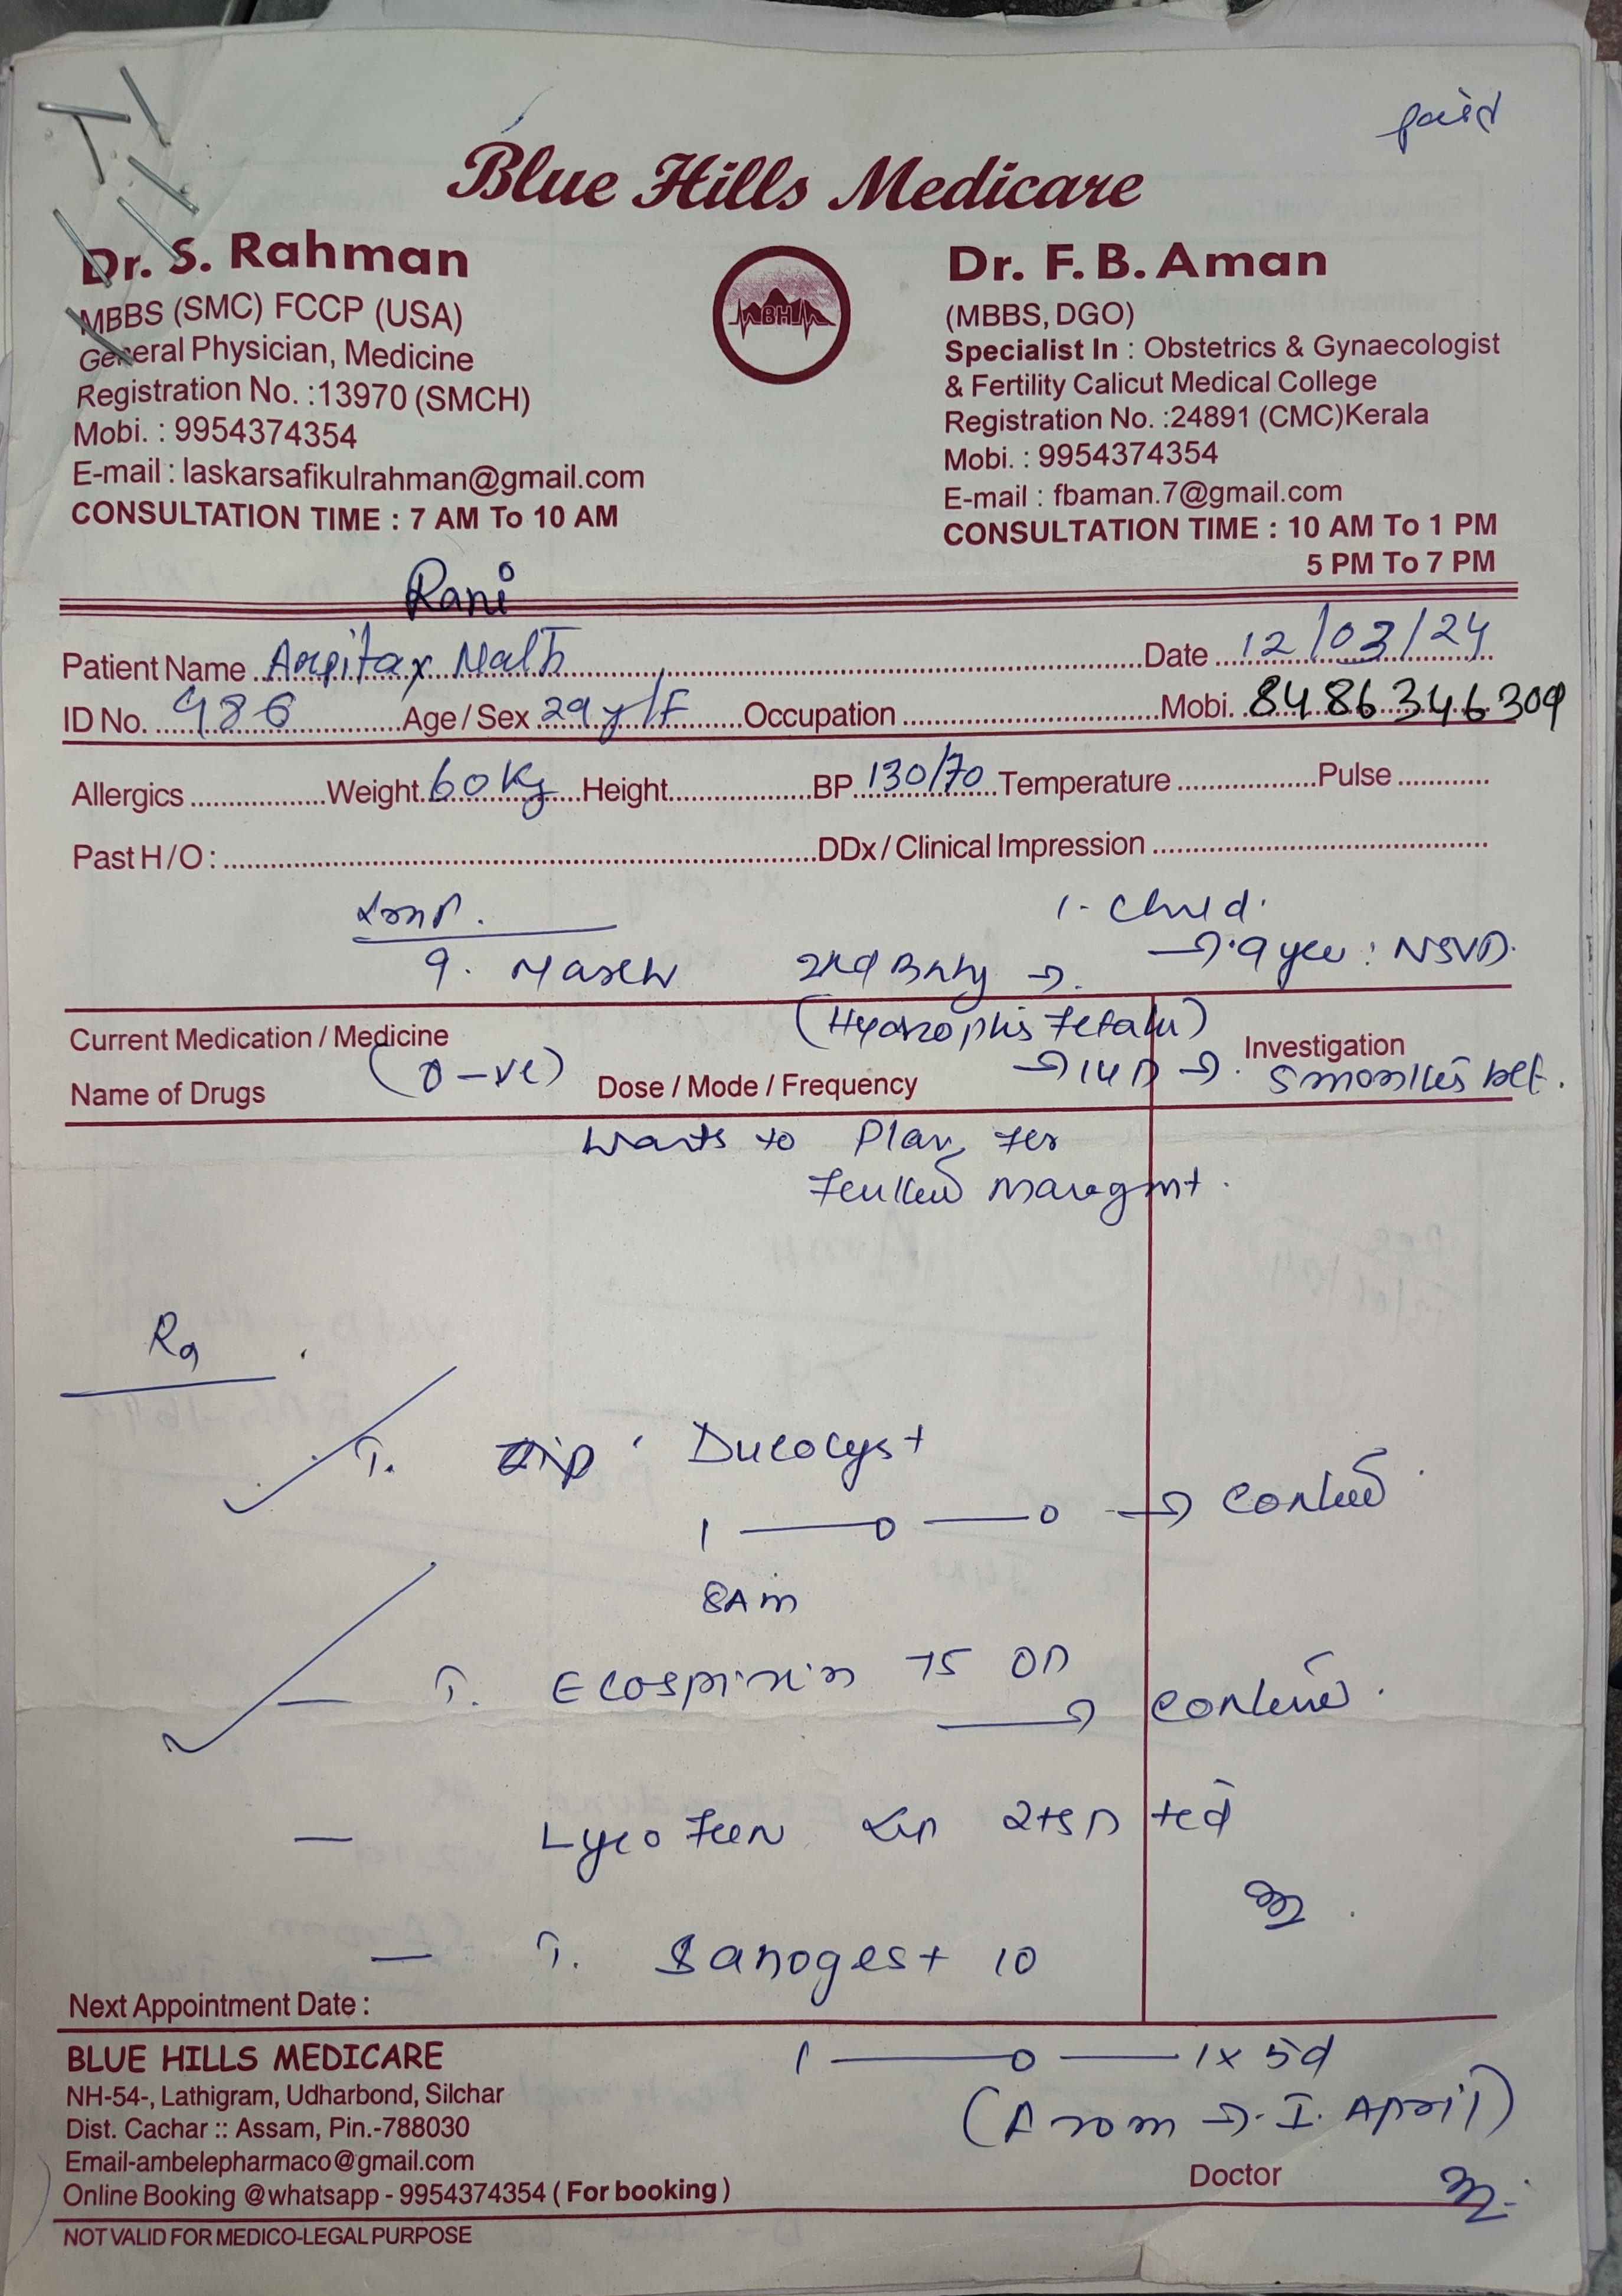 paid
Blue Hills Medicare
Dr. S. Rahman
MBBS (SMC) FCCP (USA)
General Physician, Medicine
Registration No. :13970 (SMCH)
Mobi. : 9954374354
E-mail : laskarsafikulrahman@gmail.com
CONSULTATION TIME : 7 AM To 10 AM
BHM
Dr. F. B. Aman
(MBBS, DGO)
Specialist In : Obstetrics & Gynaecologist
& Fertility Calicut Medical College
Registration No. :24891 (CMC)Kerala
Mobi. : 9954374354
E-mail : fbaman.7@gmail.com
CONSULTATION TIME : 10 AM To 1 PM
5 PM To 7 PM
Rani
Patient Name Date 12/03/24
ID No. 986 Age/Sex 29 y/F Occupation Mobi. 8486346309
Allergics Weight 60 Kg Height BP 130/70 Temperature Pulse
Past H/O : DDx / Clinical Impression
1 - Child.
9. March 2nd Baby → → 9 year : NSVD.
(Hydrophis Fetalis)
Current Medication / Medicine Investigation
(O-ve) → 14 D → 5 months
Name of Drugs Dose / Mode / Frequency
Wants to Plan for
Managmnt.
T. Ducocyst
1 — 0 — 0 →
8 Am
— T. Ecospirin 75 OD
→
— Lyco
— T. Sanogest 10
Next Appointment Date :
1 — 0 — 1 x 5d
(From → I. April)
BLUE HILLS MEDICARE
NH-54-, Lathigram, Udharbond, Silchar
Dist. Cachar :: Assam, Pin.-788030
Email-ambelepharmaco@gmail.com
Online Booking @whatsapp - 9954374354 ( For booking )
Doctor
NOT VALID FOR MEDICO-LEGAL PURPOSE